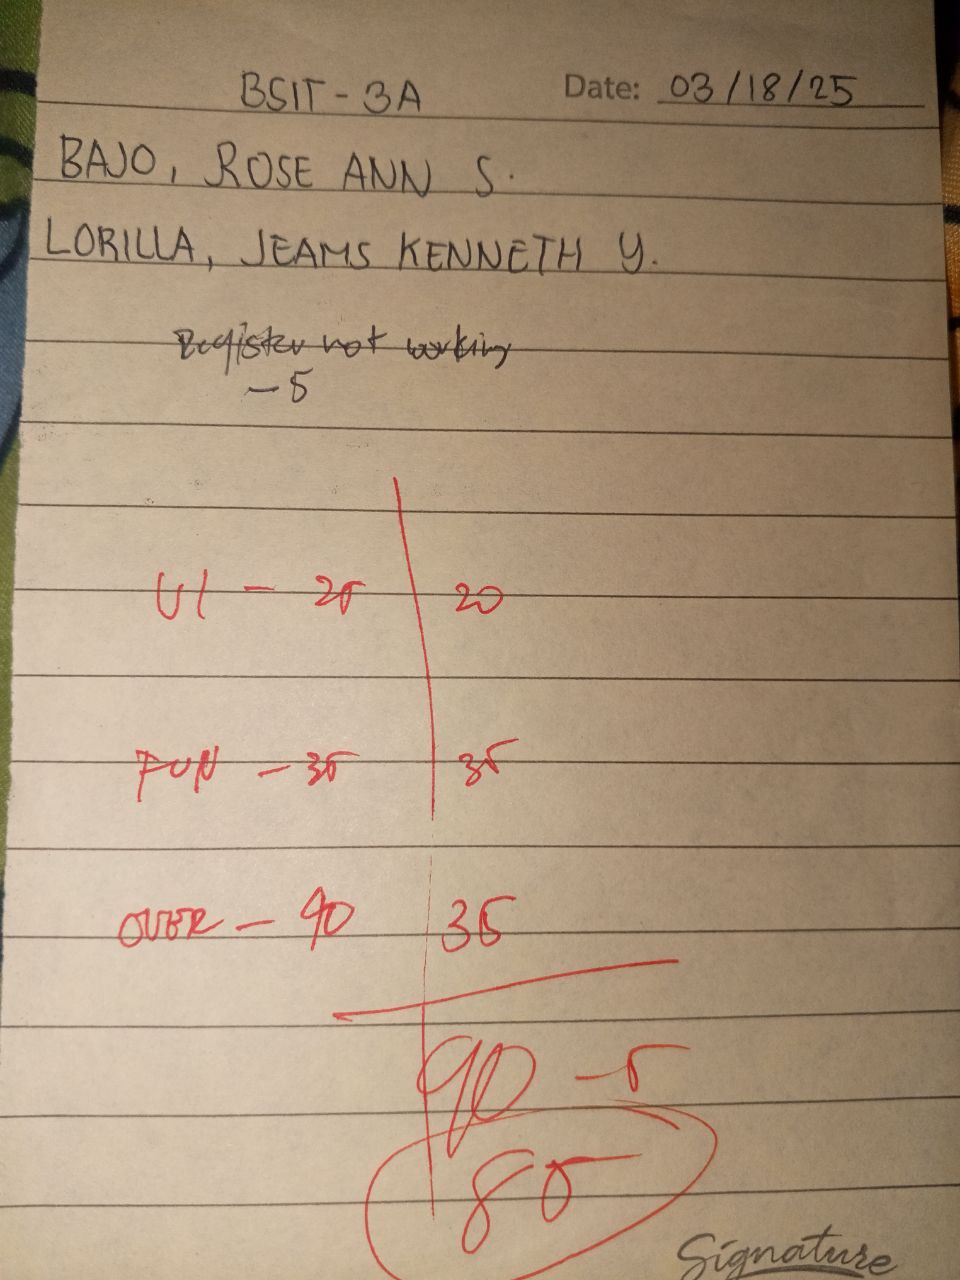 BSIT - 3A Date: 03/18/25
BAJO, ROSE ANN S.
LORILLA, JEAMS KENNETH Y.
Register not working
- 5
UI - 25 20
FUN - 35 35
OVER - 40 35
90 - 5
85
Signature